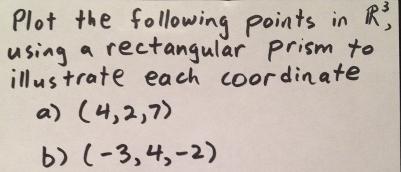 Plot the following points in ℝ³,
using a rectangular prism to
illustrate each coordinate
a) (4,2,7)
b) (-3,4,-2)